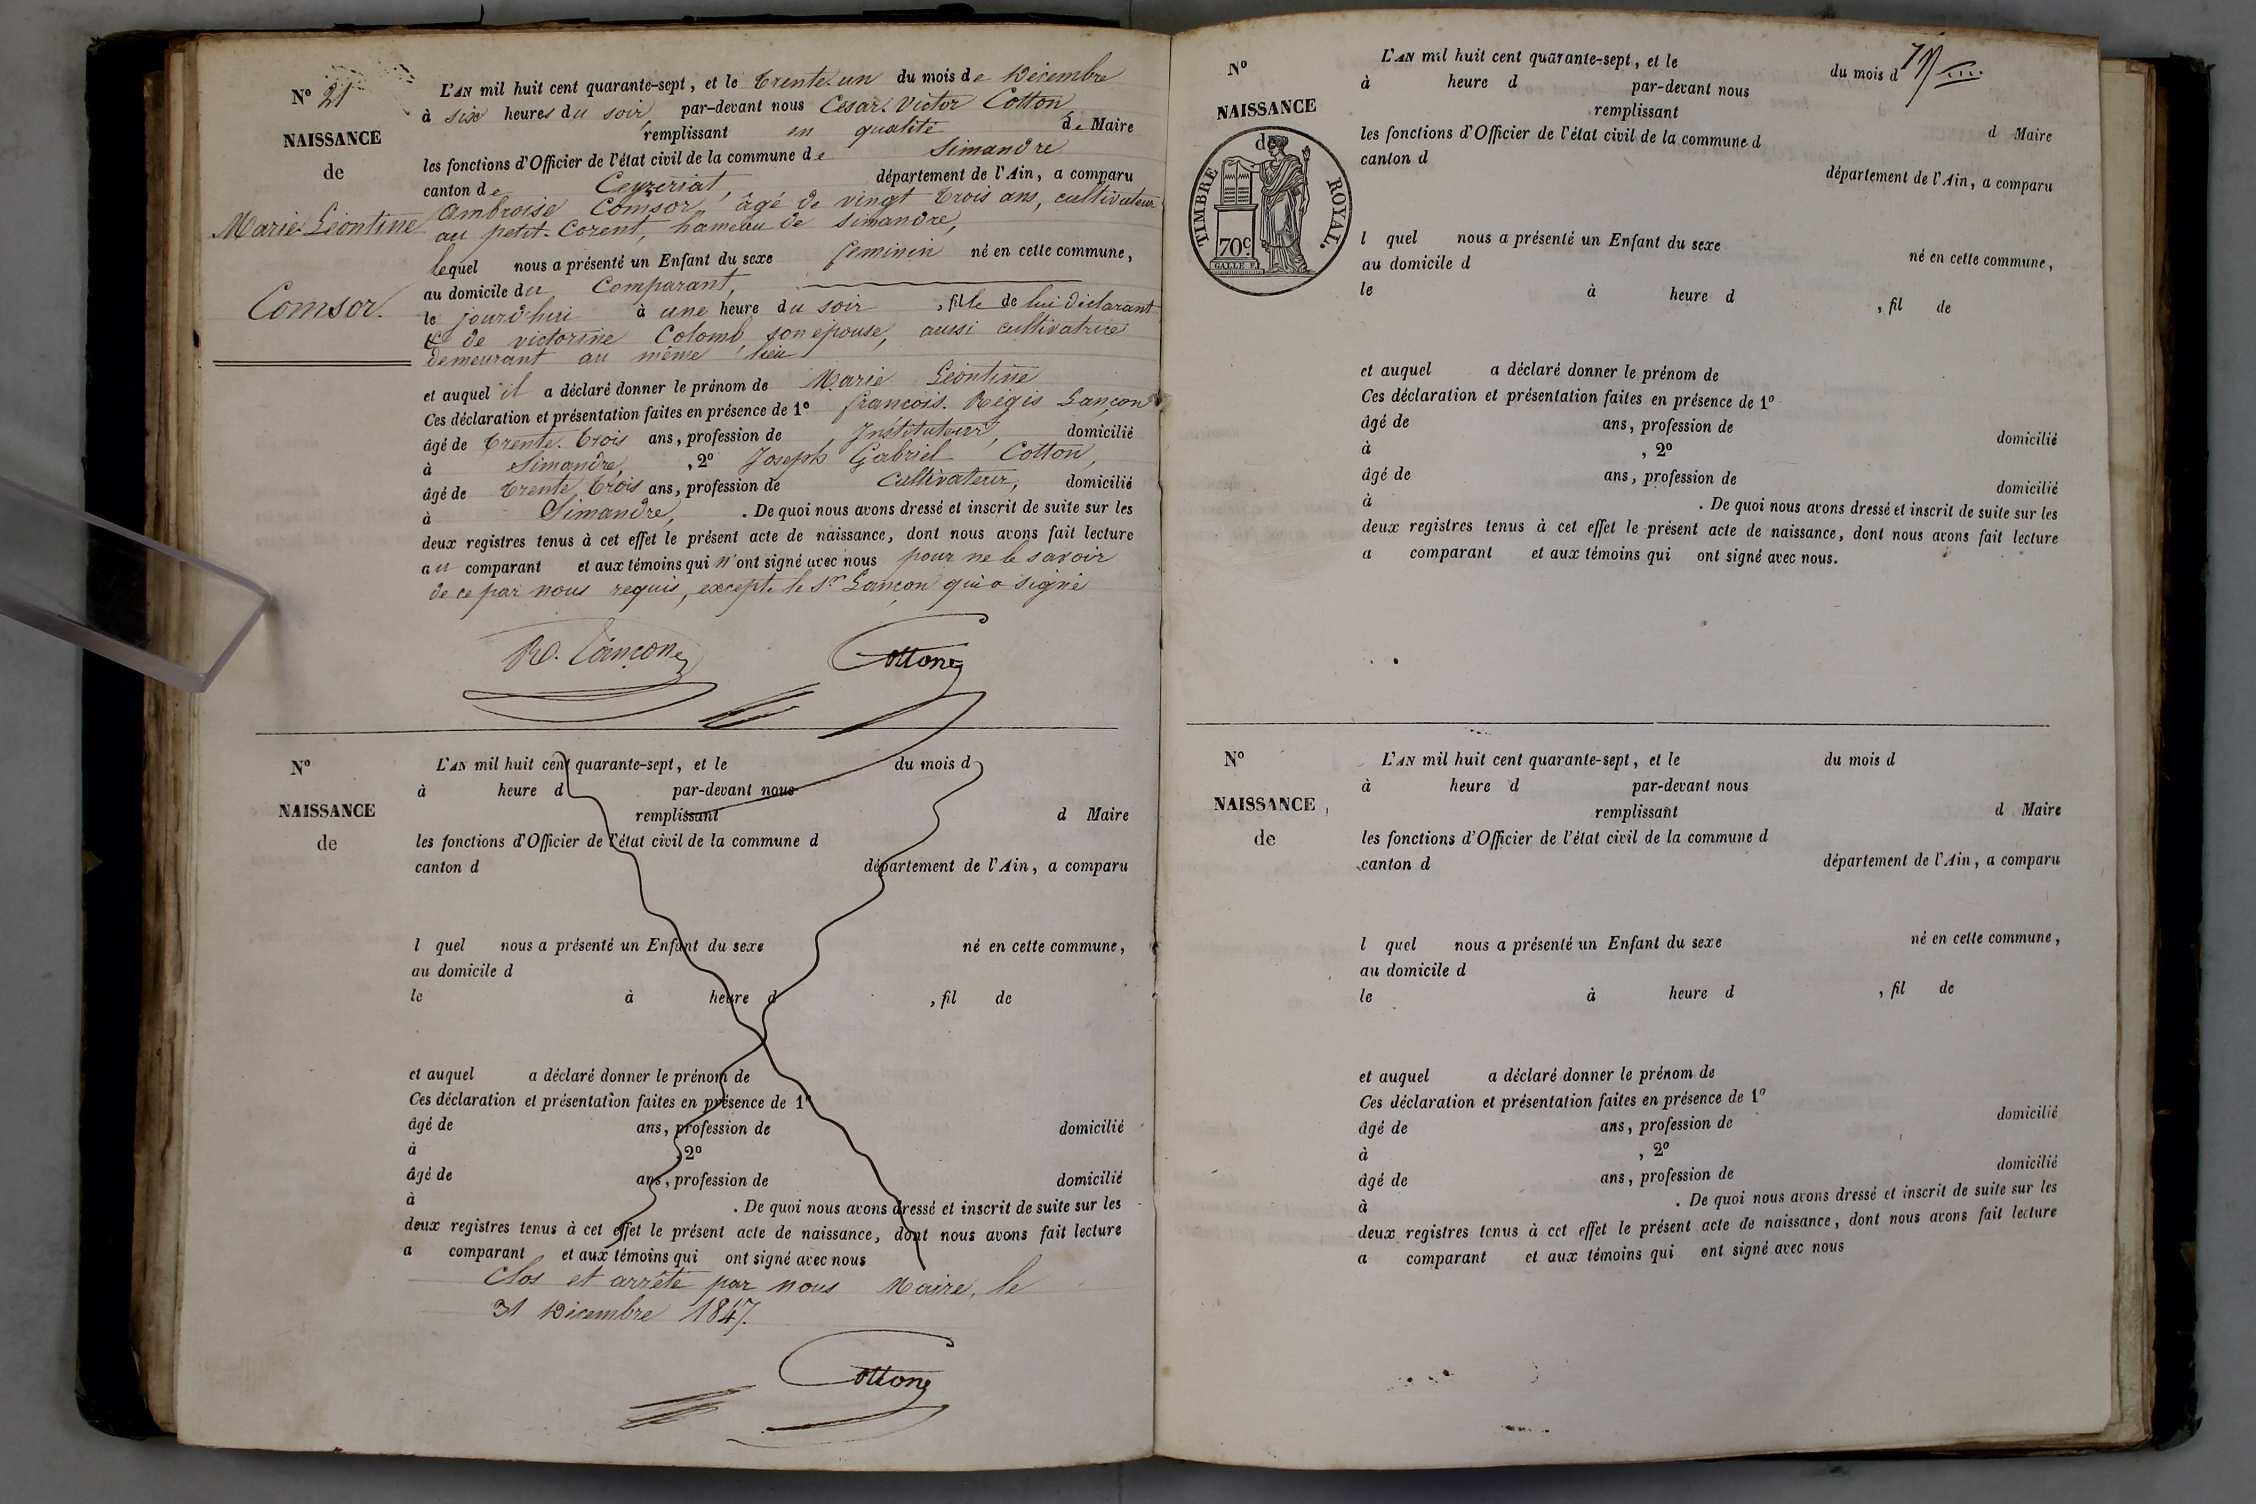 N° 21
NAISSANCE
de
Marie Léontine
Comsor.
L'AN mil huit cent quarante-sept, et le trente un du mois de Décembre
à six heures du soir par-devant nous César Victor Cotton
remplissant en qualité de Maire
les fonctions d'Officier de l'état civil de la commune de Simandre
canton de Ceyzeriat, département de l'Ain, a comparu
Ambroise Comsor, âgé de vingt trois ans, cultivateur
au petit-Corent, hameau de Simandre,
lequel nous a présenté un Enfant du sexe feminin né en cette commune,
au domicile du Comparant,
le jourd'hui à une heure du soir, fille de lui déclarant
& de victorine Colomb, son épouse, aussi cultivatrice
demeurant au même lieu
et auquel il a déclaré donner le prénom de Marie Léontine
Ces déclaration et présentation faites en présence de 1° francois Regis Lançon
âgé de trente-trois ans, profession de Instituteur, domicilié
à Simandre, , 2° Joseph Gabriel Cotton,
âgé de trente trois ans, profession de Cultivateur, domicilié
à Simandre, . De quoi nous avons dressé et inscrit de suite sur les
deux registres tenus à cet effet le présent acte de naissance, dont nous avons fait lecture
au comparant et aux témoins qui n'ont signé avec nous pour ne le savoir
de ce par nous requis, excepté le Sr Lançon qui a signé
R. Lançon Cotton
N°
NAISSANCE
de
L'AN mil huit cent quarante-sept, et le du mois d
à heure d par-devant nous
remplissant d Maire
les fonctions d'Officier de l'état civil de la commune d
canton d département de l'Ain, a comparu
l quel nous a présenté un Enfant du sexe né en cette commune,
au domicile d
le à heure d , fil de
et auquel a déclaré donner le prénom de
Ces déclaration et présentation faites en présence de 1°
âgé de ans, profession de domicilié
à , 2°
âgé de ans, profession de domicilié
à . De quoi nous avons dressé et inscrit de suite sur les
deux registres tenus à cet effet le présent acte de naissance, dont nous avons fait lecture
a comparant et aux témoins qui ont signé avec nous
Clos et arrêté par nous Maire, le
31 Décembre 1847.
Cotton
N°
NAISSANCE
de
TIMBRE ROYAL.
70c
L'AN mil huit cent quarante-sept, et le du mois d
à heure d par-devant nous
remplissant d Maire
les fonctions d'Officier de l'état civil de la commune d
canton d département de l'Ain, a comparu
l quel nous a présenté un Enfant du sexe né en cette commune,
au domicile d
le à heure d , fil de
et auquel a déclaré donner le prénom de
Ces déclaration et présentation faites en présence de 1°
âgé de ans, profession de domicilié
à , 2°
âgé de ans, profession de domicilié
à . De quoi nous avons dressé et inscrit de suite sur les
deux registres tenus à cet effet le présent acte de naissance, dont nous avons fait lecture
a comparant et aux témoins qui ont signé avec nous.
N°
NAISSANCE
de
L'AN mil huit cent quarante-sept, et le du mois d
à heure d par-devant nous
remplissant d Maire
les fonctions d'Officier de l'état civil de la commune d
canton d département de l'Ain, a comparu
l quel nous a présenté un Enfant du sexe né en cette commune,
au domicile d
le à heure d , fil de
et auquel a déclaré donner le prénom de
Ces déclaration et présentation faites en présence de 1°
âgé de ans, profession de domicilié
à , 2°
âgé de ans, profession de domicilié
à . De quoi nous avons dressé et inscrit de suite sur les
deux registres tenus à cet effet le présent acte de naissance, dont nous avons fait lecture
a comparant et aux témoins qui ont signé avec nous